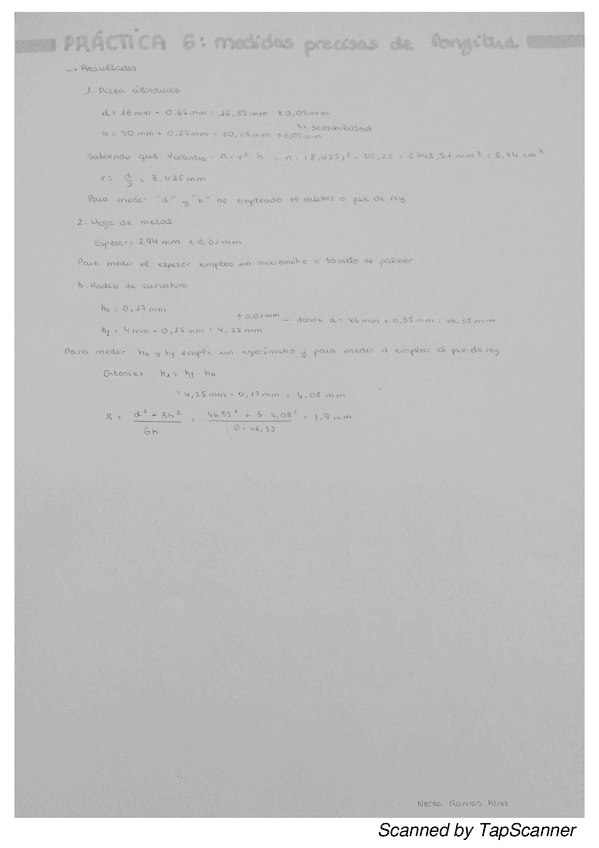 PRÁCTICA 6: medidas precisas de longitud
→ Resultados
1. Pieza cilíndrica
d = 16 mm + 0.85 mm = 16,85 mm ± 0,05 mm
h = 30 mm + 0,25 mm = 30,25 mm ± 0,05 mm ↳ sensibilidad
Sabiendo que = π · r² · h = π · (8,425)² · 30,25 = 6743,51 mm³ = 6.74 cm³
r = d/2 = 8.425 mm
Para medir "d" y "h" he empleado el calibre o pie de rey
2. Hoja de metal
Espesor = 2,94 mm ± 0,01 mm
Para medir el espesor empleo un micrómetro o tornillo de palmer
3. Radio de curvatura
h₀ = 0,17 mm
h₁ = 4 mm + 0,25 mm = 4,25 mm ± 0,01 mm — donde d = 46 mm + 0,35 mm = 46,35 mm
Para medir h₀ y h₁ emplee un esferómetro y para medir d empleo el pie de rey
Entonces h = h₁ - h₀
= 4,25 mm - 0,17 mm = 4,08 mm
R = d² + 3h² / 6h = 46,35² + 3 · 4,08² / 6 · 46,35 = 7,9 mm
Nerea Ramos Pérez
Scanned by TapScanner